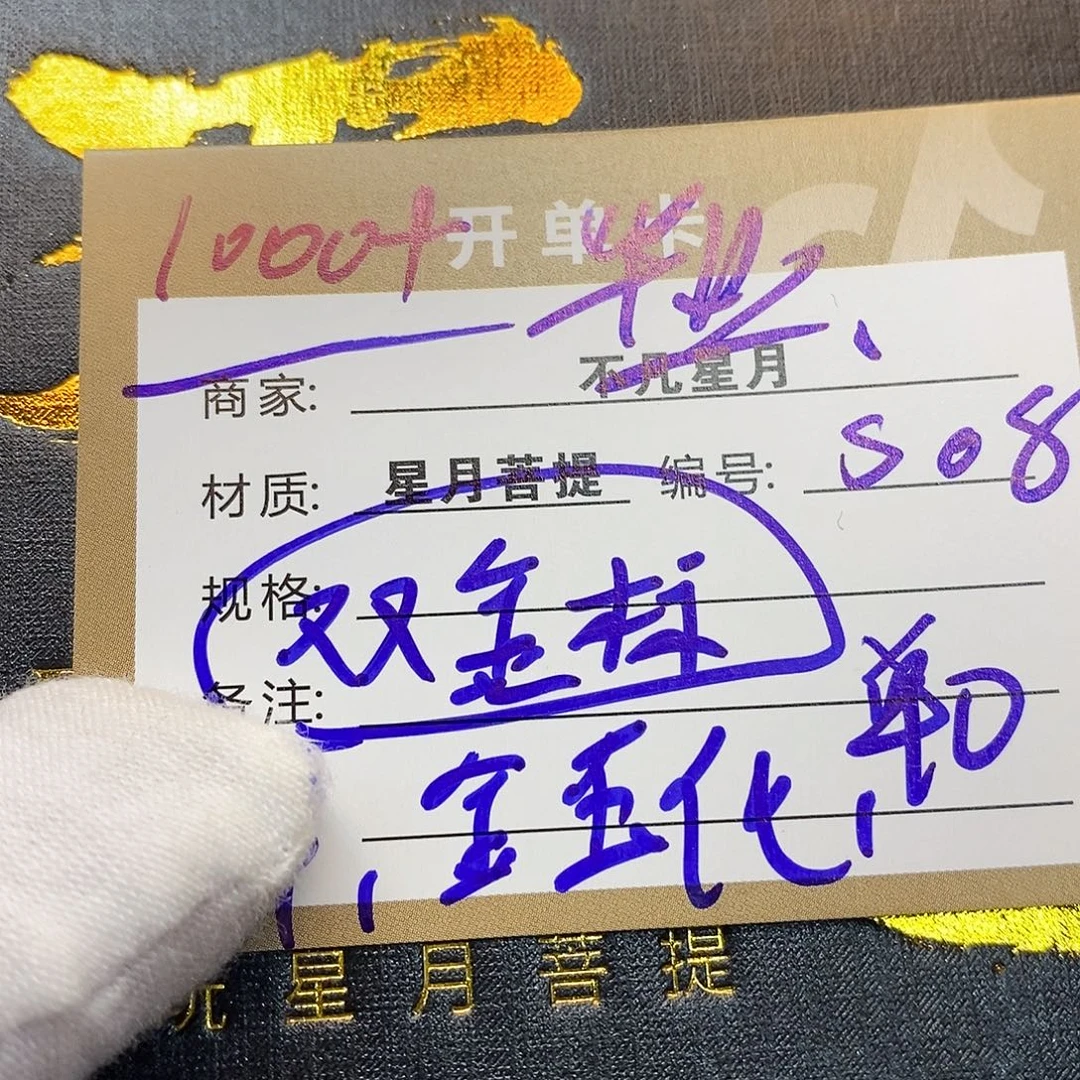 开单卡
1000+
商家: 不凡星月
材质: 星月菩提 编号: S08
规格: 双金标
备注:
单
金玉化
玩星月菩提